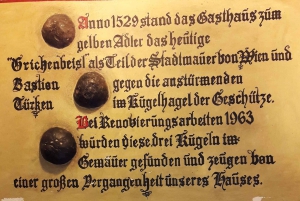 Anno 1529 stand das Gasthaus zum
gelben Adler das heutige
"Grichenbeisl als Teil der Stadtmauer von Wien und
Bastion gegen die anstürmenden
Türken im Kügelhagel der Geschütze.
Bei Renovierungsarbeiten 1963
würden diese drei Kügeln im
Gemäüer gefünden und zeügen von
einer großen Vergangenheit ünseres Haüses.